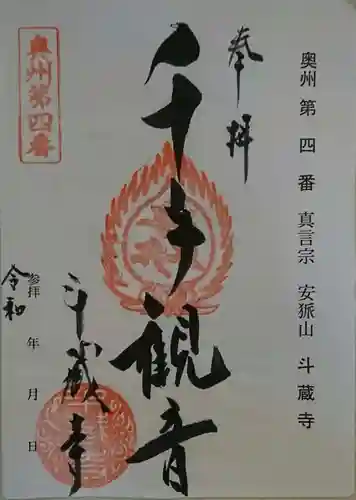 奥州第四番 真言宗 安狐山 斗蔵寺
奉拝
千手観音
奥州第四番
斗蔵寺
参拝 年 月 日
令和